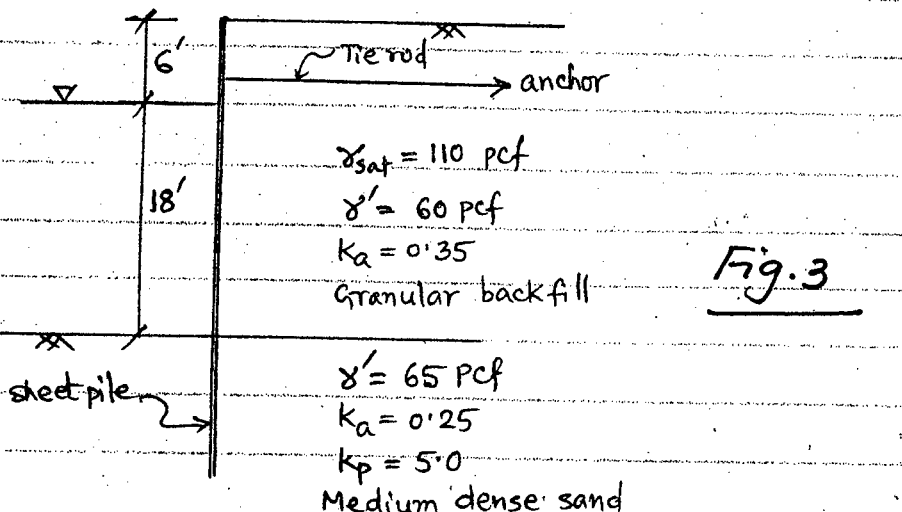 6'
Tie rod
anchor
18'
γsat = 110 pcf
γ' = 60 pcf
Ka = 0.35
Granular backfill
Fig. 3
sheet pile
γ' = 65 pcf
Ka = 0.25
Kp = 5.0
Medium dense sand